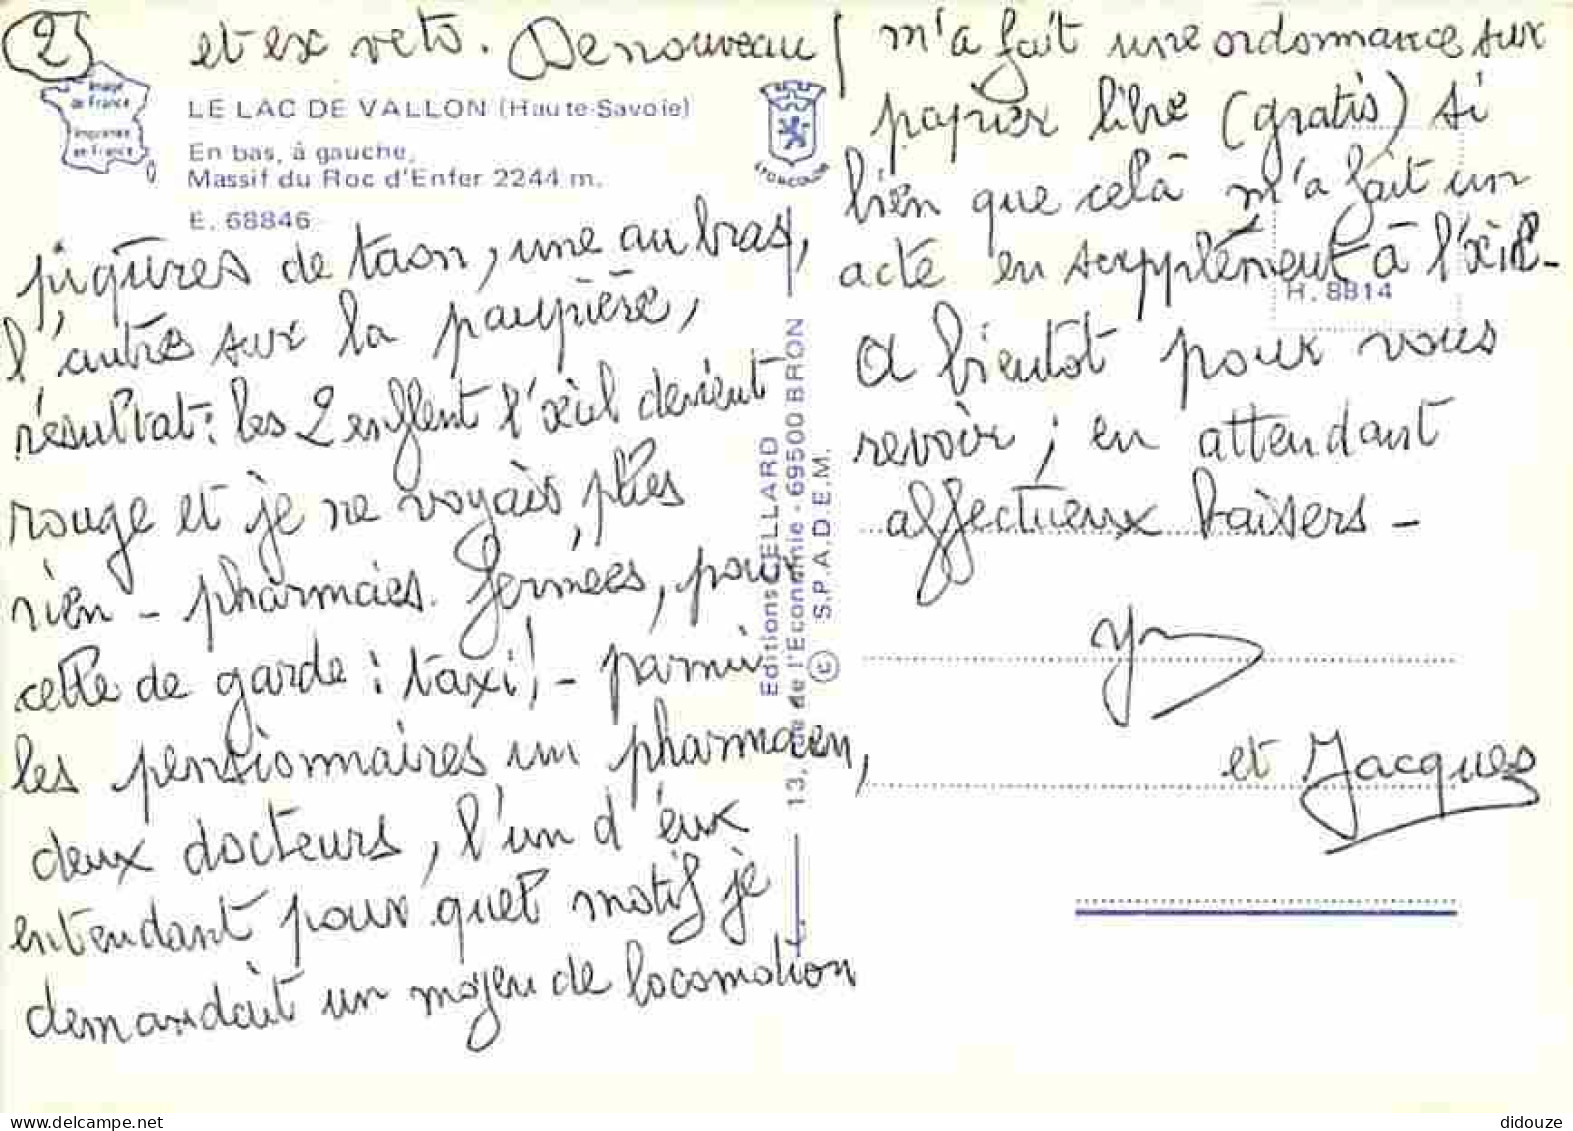 2
et ex veto. De nouveau
Image
de France
Imprimée
en France
LE LAC DE VALLON (Haute-Savoie)
En bas, à gauche,
Massif du Roc d'Enfer 2244 m.
E. 68846
piqûres de taon, une au bras,
l'autre sur la paupière,
résultat : les 2 enflent l'œil devient
rouge et je ne voyais plus
rien - pharmacies fermées, pour
celle de garde : taxi ! - parmi
les pensionnaires un pharmacien,
deux docteurs, l'un d'eux
entendant pour quel motif je
demandait un moyen de locomotion
LYONCOLOR
Editions CELLARD
13, rue de l'Economie - 69500 BRON
© S.P.A.D.E.M.
m'a fait une ordonnance sur
papier libre (gratis) si
bien que celà m'a fait un
acte en supplément à l'œil-
H. 8814
A bientot pour vous
revoir ; en attendant
affectueux baisers -
et Jacques
didouze